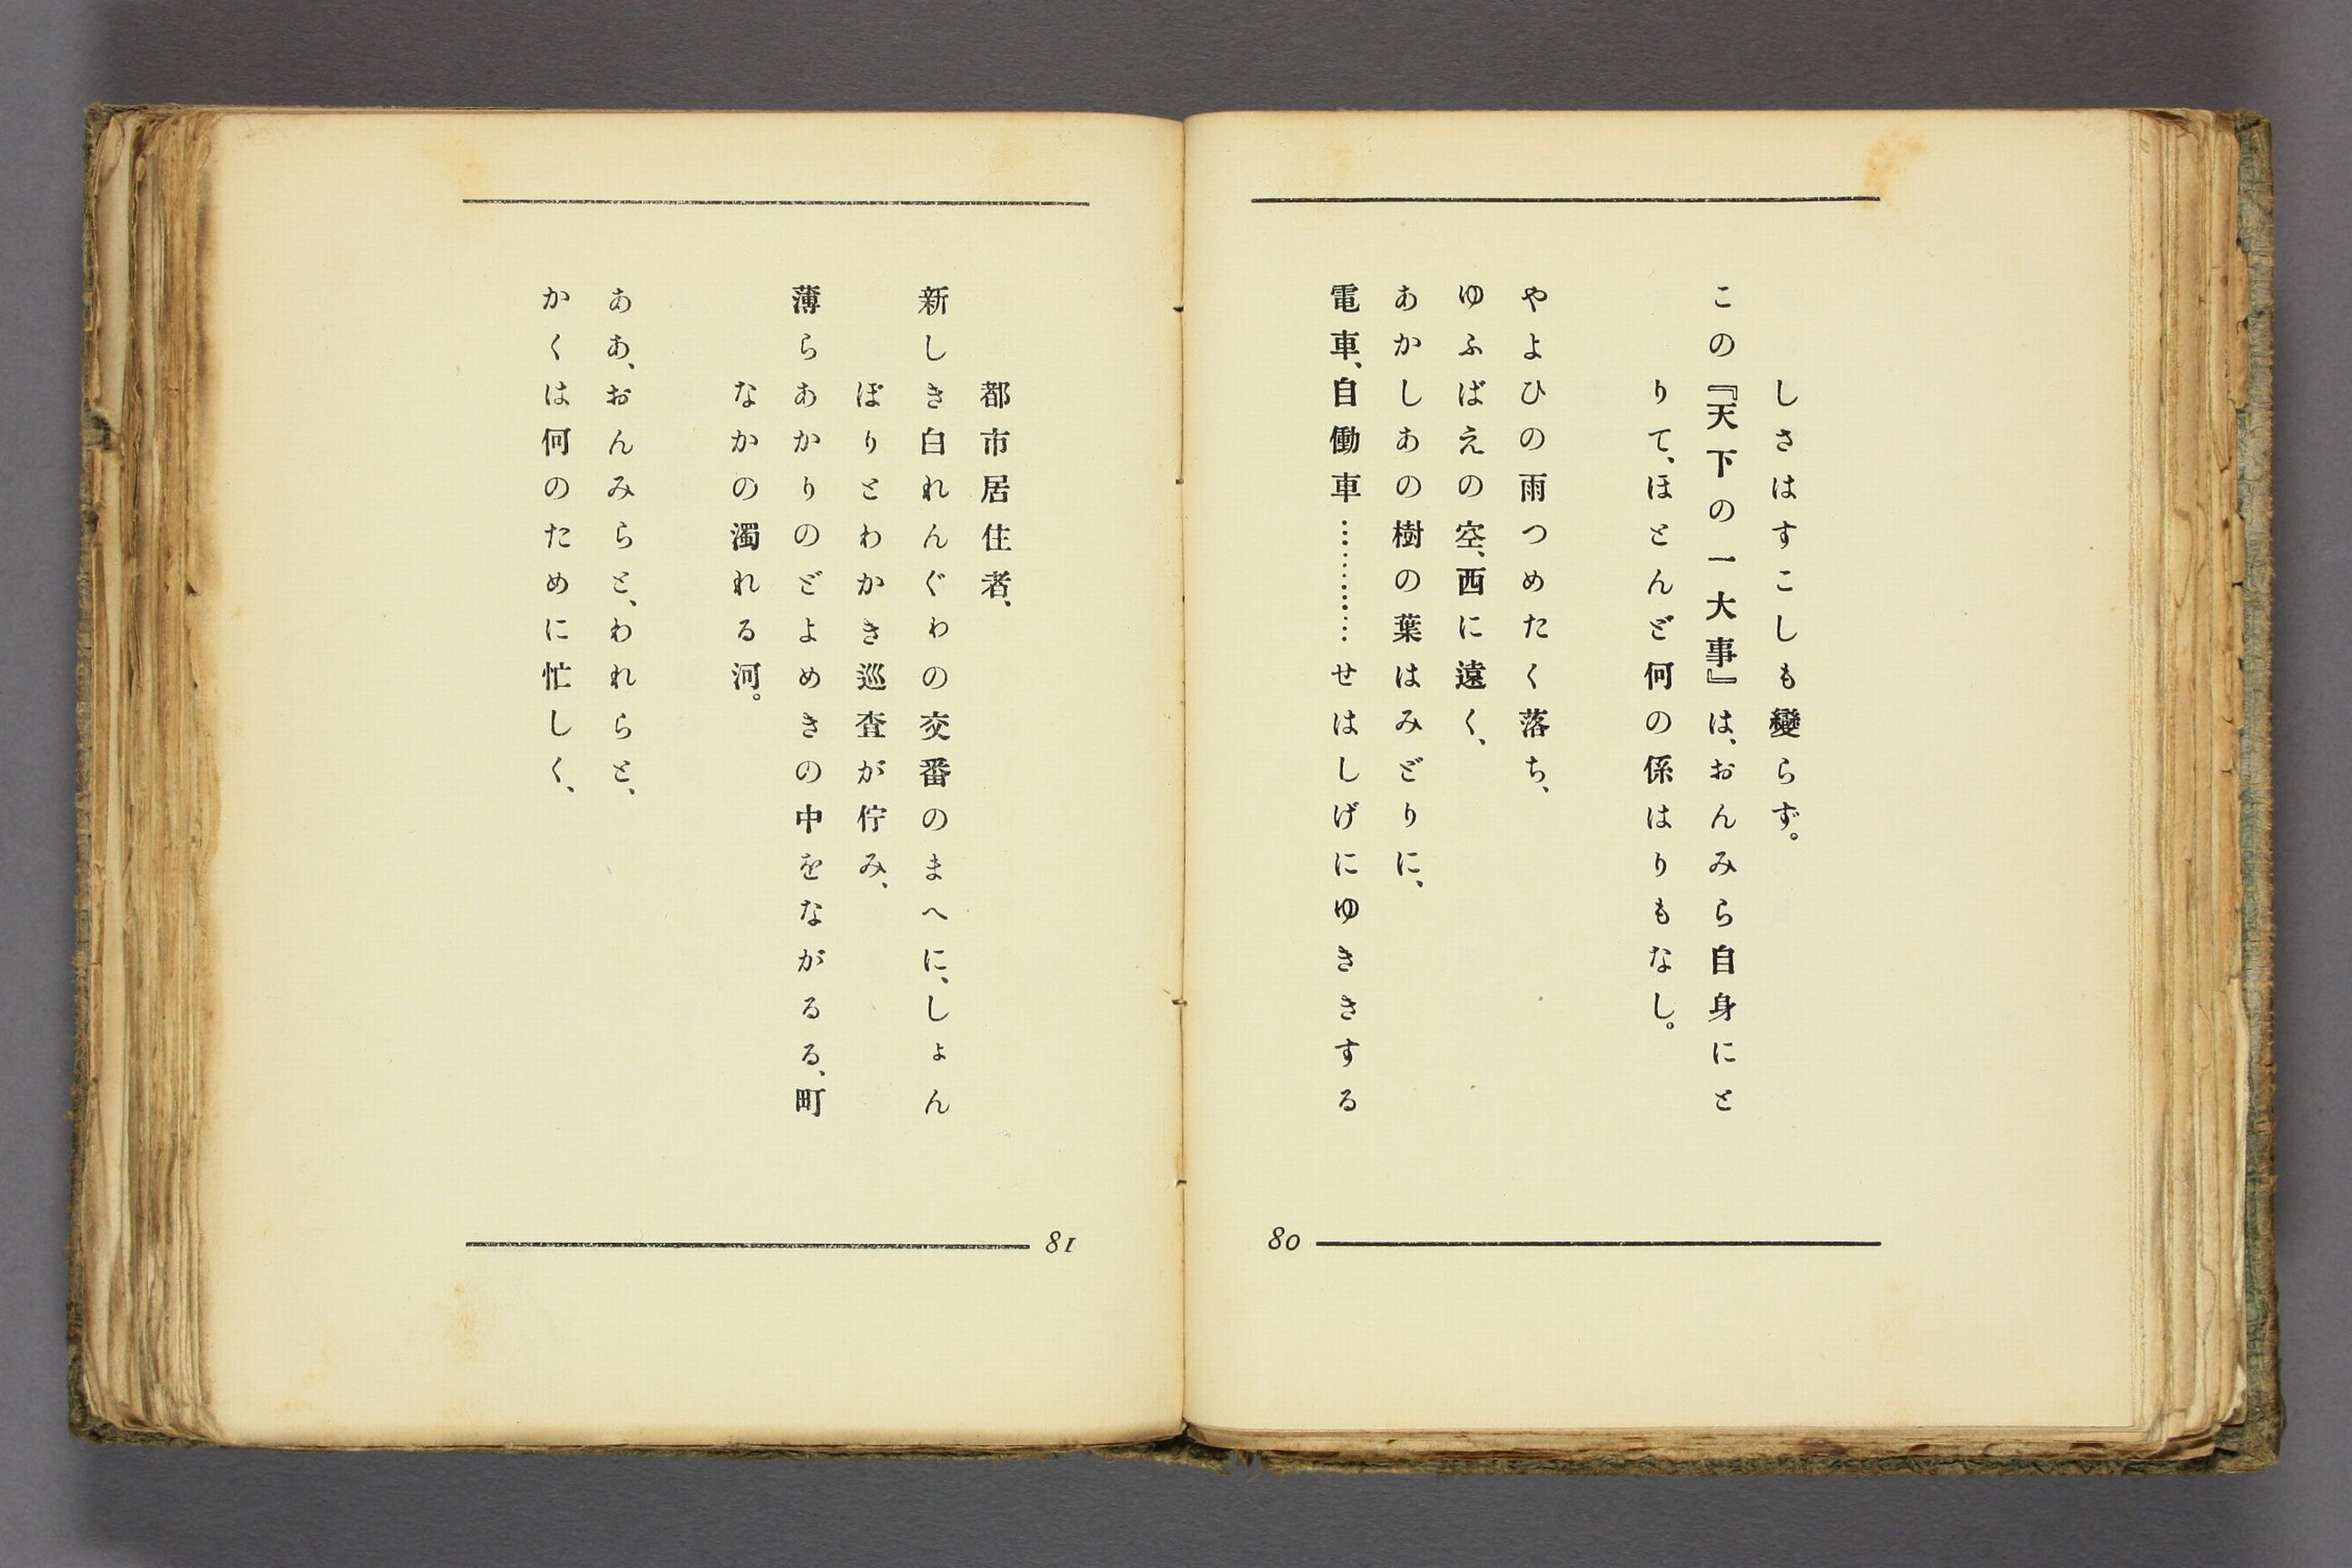 しさはすこしも變らず。
この『天下の一大事』は、おんみら自身にと
りて、ほとんど何の係はりもなし。
やよひの雨つめたく落ち、
ゆふばえの空、西に遠く、
あかしあの樹の葉はみどりに、
電車、自働車…………せはしげにゆききする
80
都市居住者、
新しき白れんぐわの交番のまへに、しょん
ぼりとわかき巡査が佇み、
薄らあかりのどよめきの中をながるる、町
なかの濁れる河。
ああ、おんみらと、われらと、
かくは何のために忙しく、
81